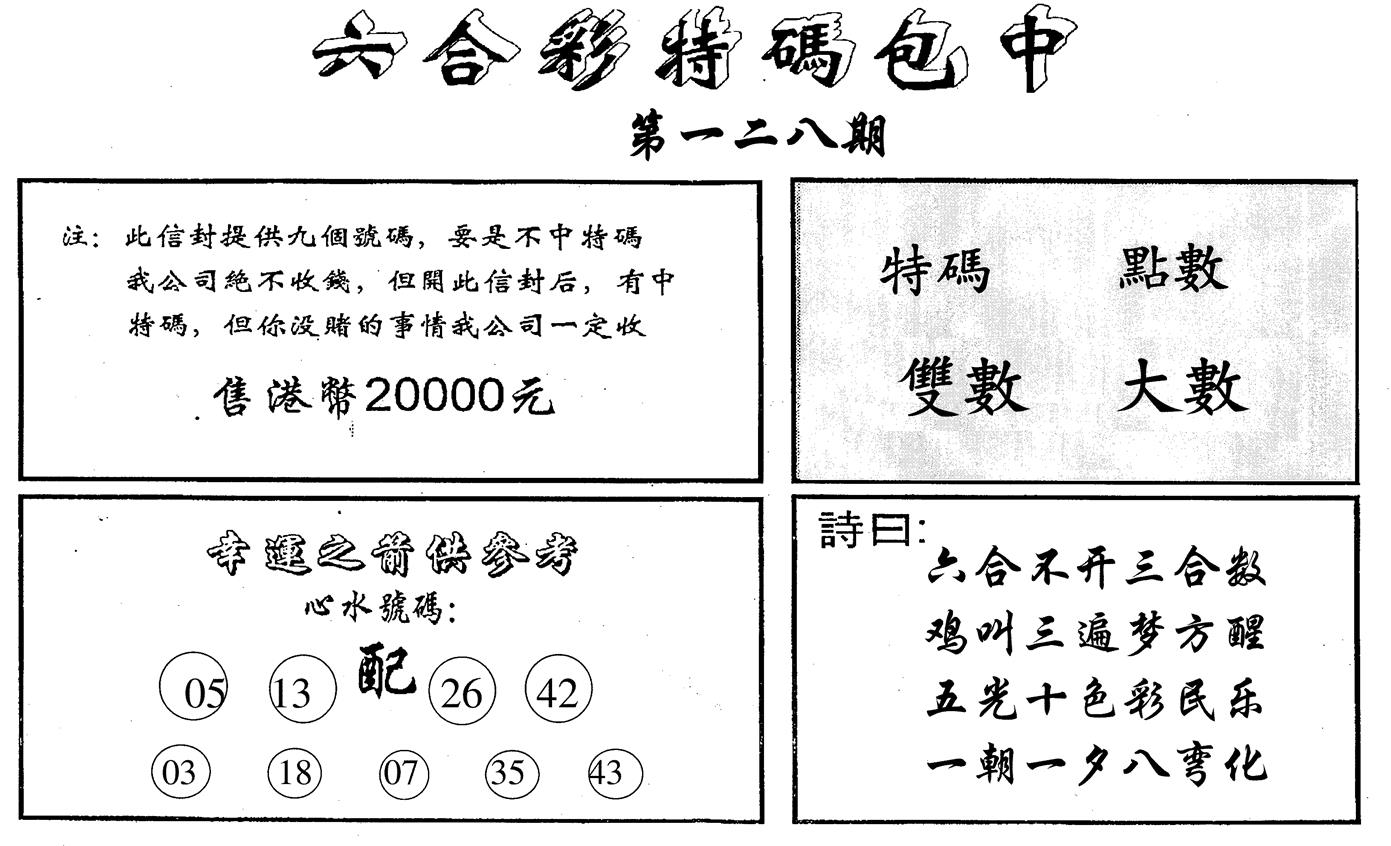 六合彩特碼包中
第一二八期
注：此信封提供九個號碼，要是不中特碼
我公司絶不收錢，但開此信封后，有中
特碼，但你没賭的事情我公司一定收
售港幣20000元
特碼 點數
雙數 大數
幸運之箭供參考
心水號碼：
05 13 配 26 42
03 18 07 35 43
詩曰：
六合不开三合数
鸡叫三遍梦方醒
五光十色彩民乐
一朝一夕八弯化